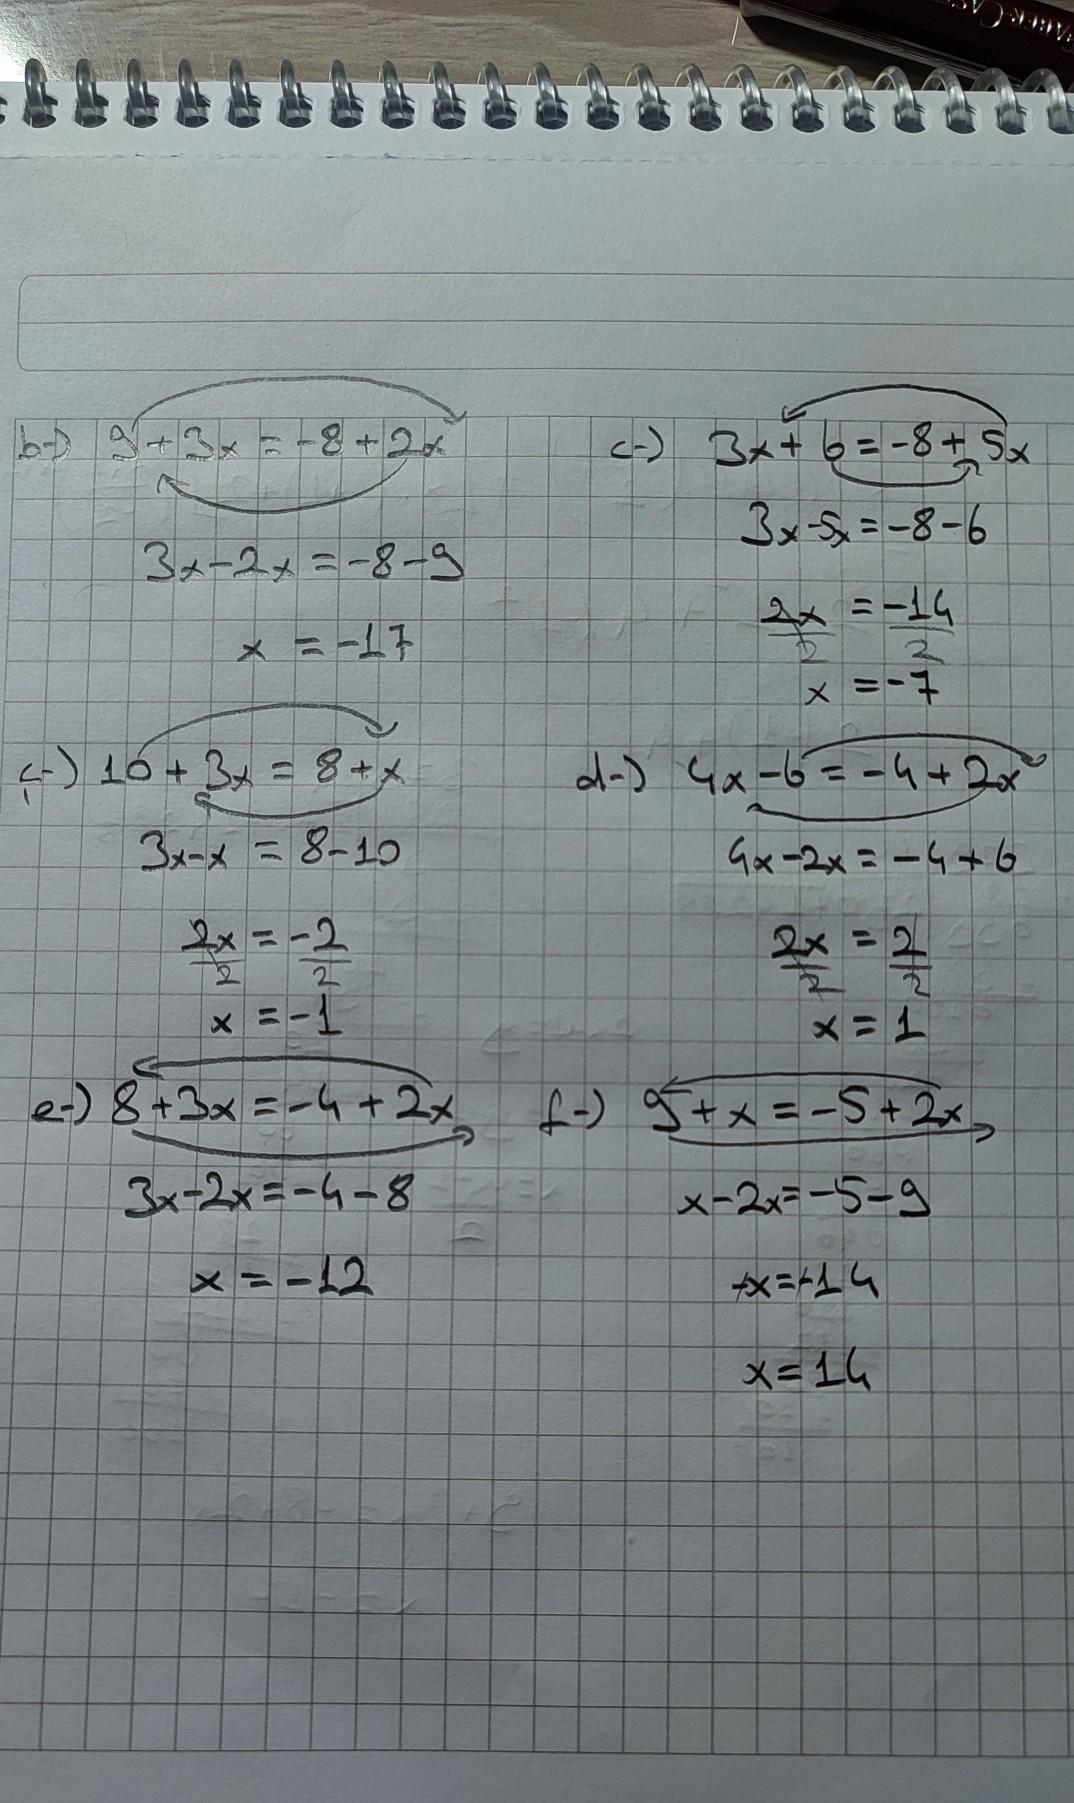 FABER-CAS
b-) 9+3x=-8+2x
3x-2x=-8-9
x=-17
c-) 3x+6=-8+5x
3x-5x=-8-6
2x/2=-14/2
x=-7
ç-) 10+3x=8+x
3x-x=8-10
2x/2=-2/2
x=-1
d-) 4x-6=-4+2x
4x-2x=-4+6
2x/2=2/2
x=1
e-) 8+3x=-4+2x
3x-2x=-4-8
x=-12
f-) 9+x=-5+2x
x-2x=-5-9
-x=-14
x=14